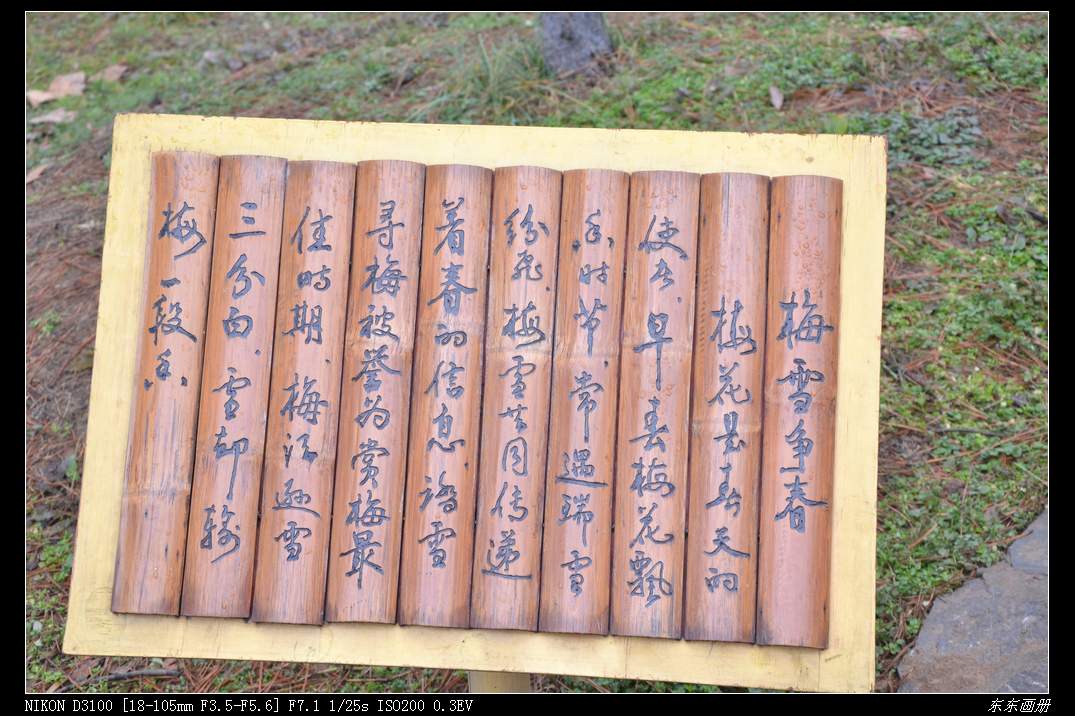 梅雪争春
梅花是春天的
使者，早春梅花飘
香时节，常遇瑞雪
纷飞，梅雪共同传递
着春的信息，踏雪
寻梅被誉为赏梅最
佳时期，梅须逊雪
三分白，雪却输
梅一段香
NIKON D3100 [18-105mm F3.5-F5.6] F7.1 1/25s ISO200 0.3EV
东东画册